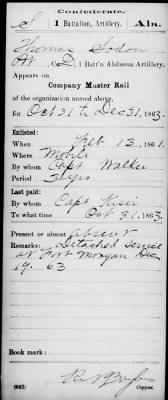 Confederate.
S | 1 Battalion, Artillery. | Ala.
Thomas
Pvt, Co. D, 1 Batt'n Alabama Artillery.
Appears on
Company Muster Roll
of the organization named above,
for Oct 31 to Dec 31, 1863.
Enlisted:
When Feb 13, 1861
Where Mobile
By whom Capt Walker
Period 3 yrs
Last paid:
By whom Capt
To what time Oct 31, 1863.
Present or absent absent
Remarks: Detached service
at Fort Morgan Dec
19. 63
Book mark:
(642)
Copyist.